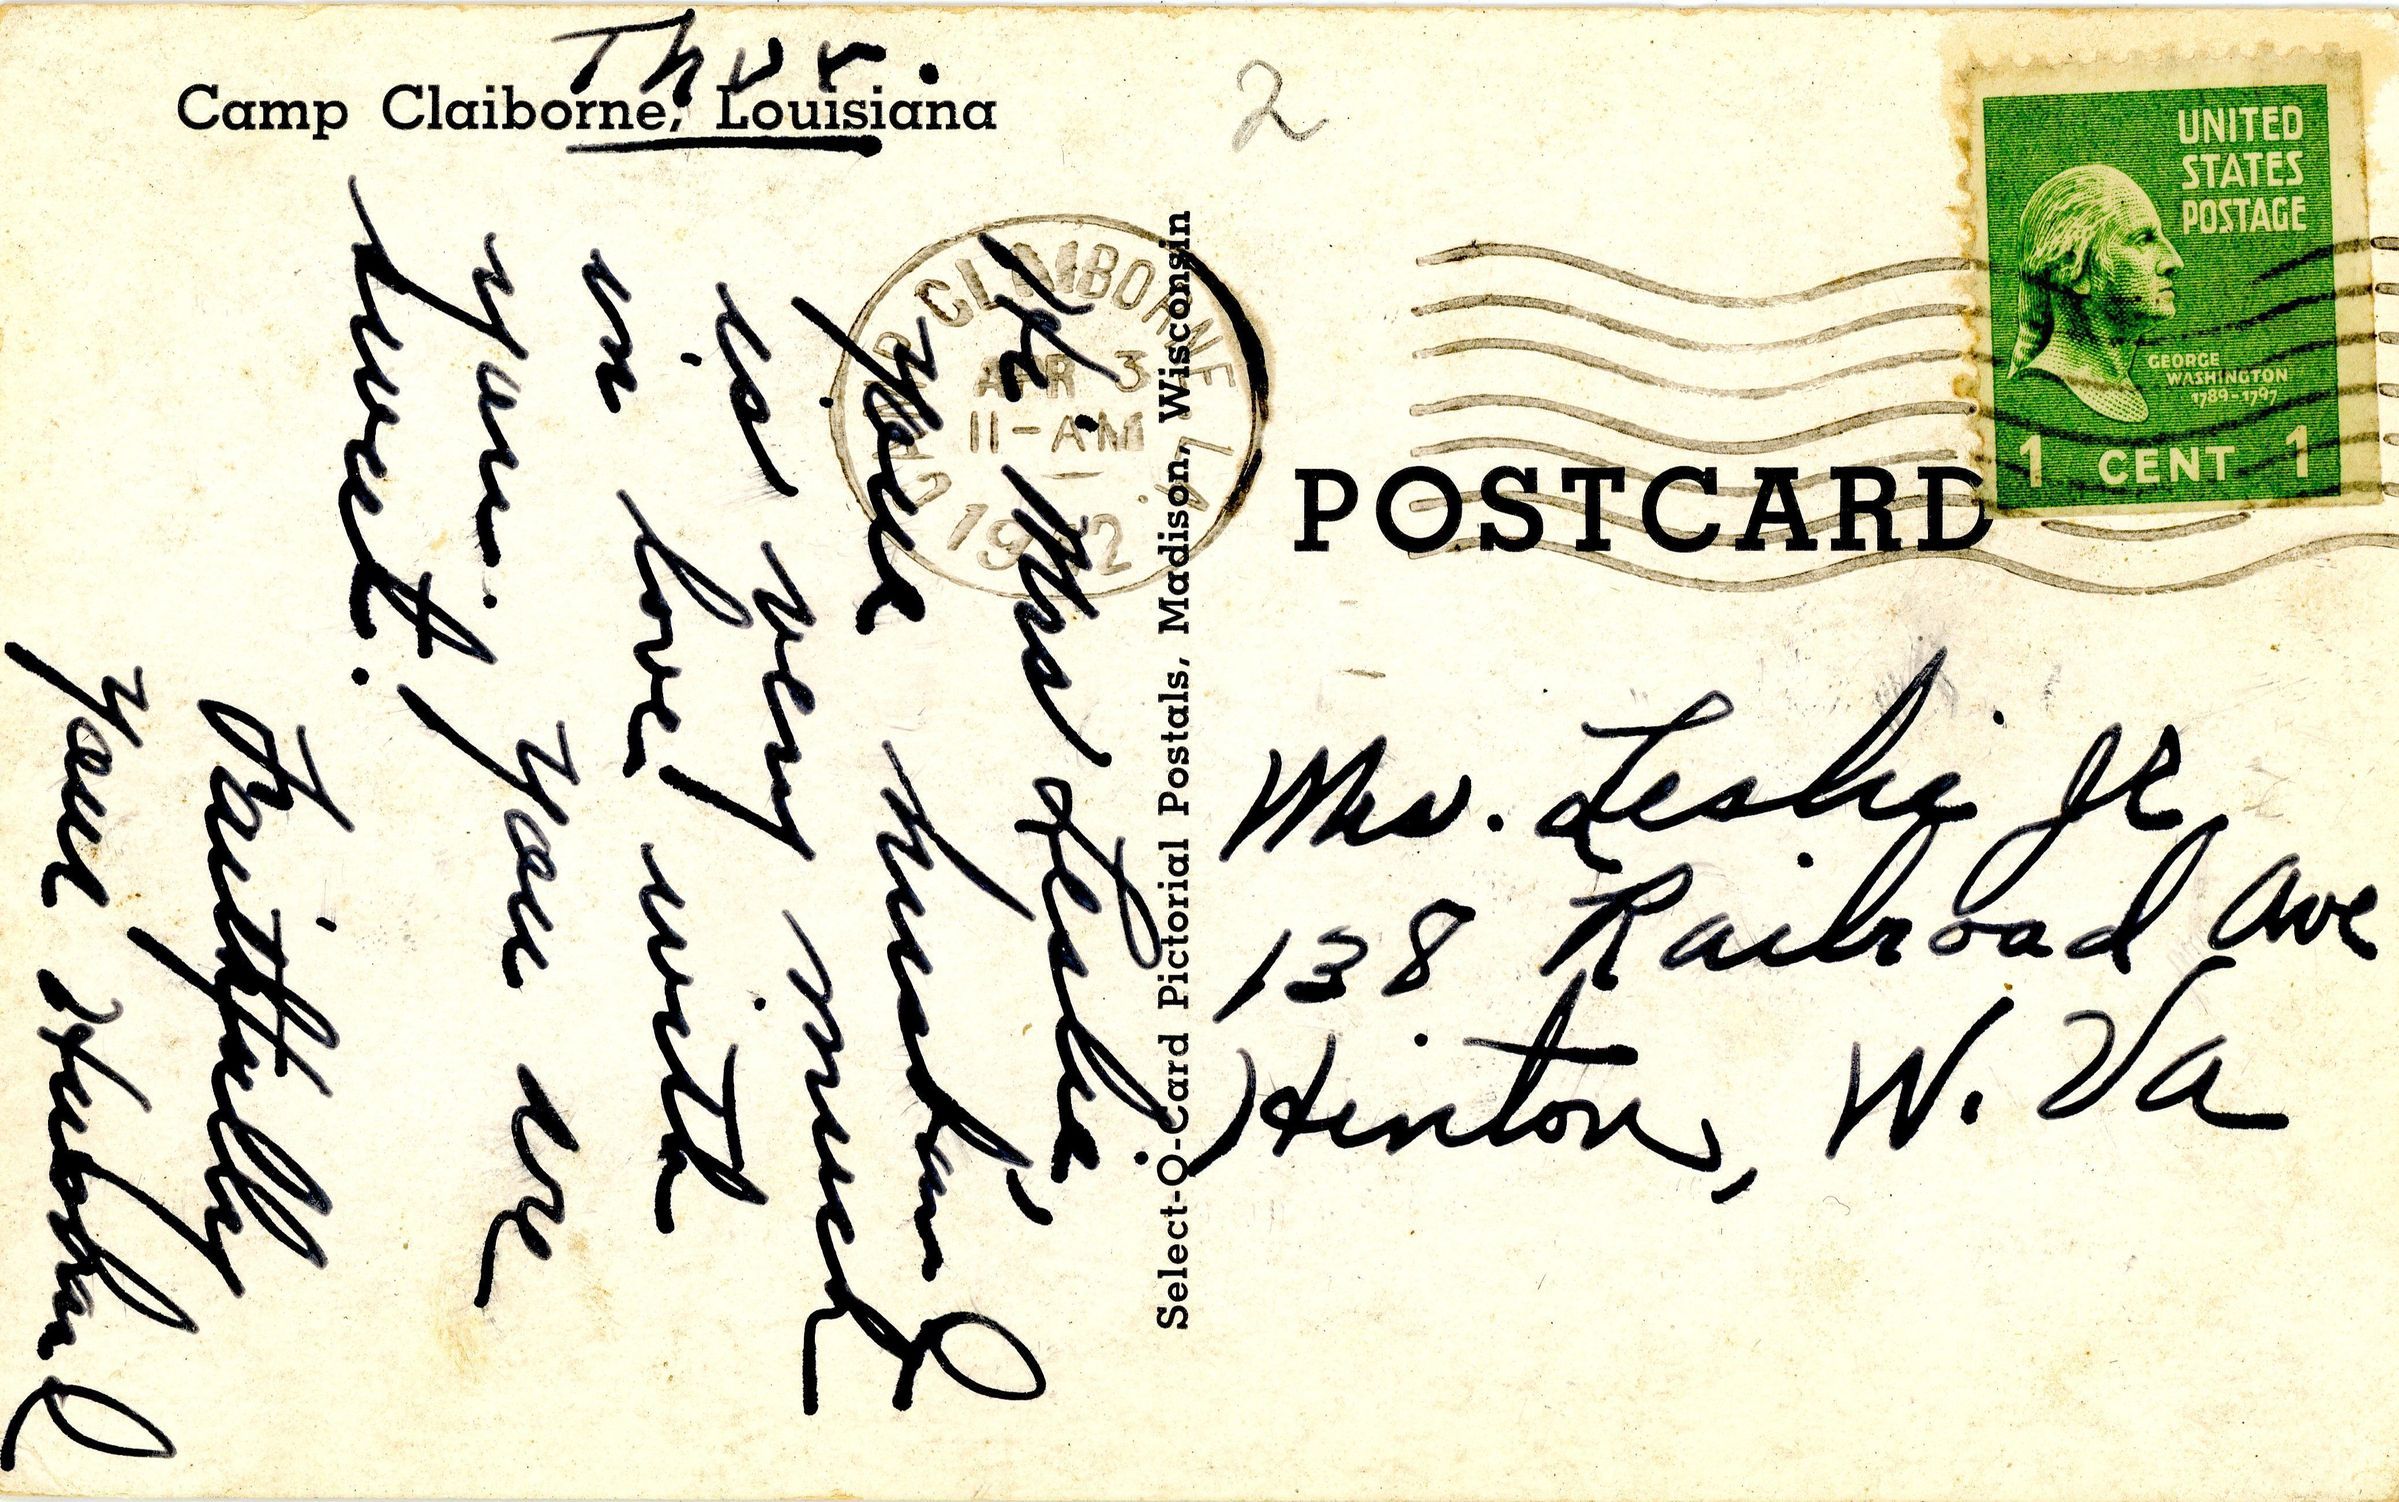 Camp Claiborne, Louisiana
2
UNITED
STATES
POSTAGE
GEORGE
WASHINGTON
1789-1797
1 CENT 1
CAMP CLAIBORNE LA.
APR 3
11-AM
1942
POSTCARD
Hi. Mrs Leslie
Your husband
is very much
in love with
you. You are
sweet.
Faithfully
Your Husband
Select-O-Card Pictorial Postals, Madison, Wisconsin
Mrs. Leslie Jr
138 Railroad Ave
Hinton, W. Va